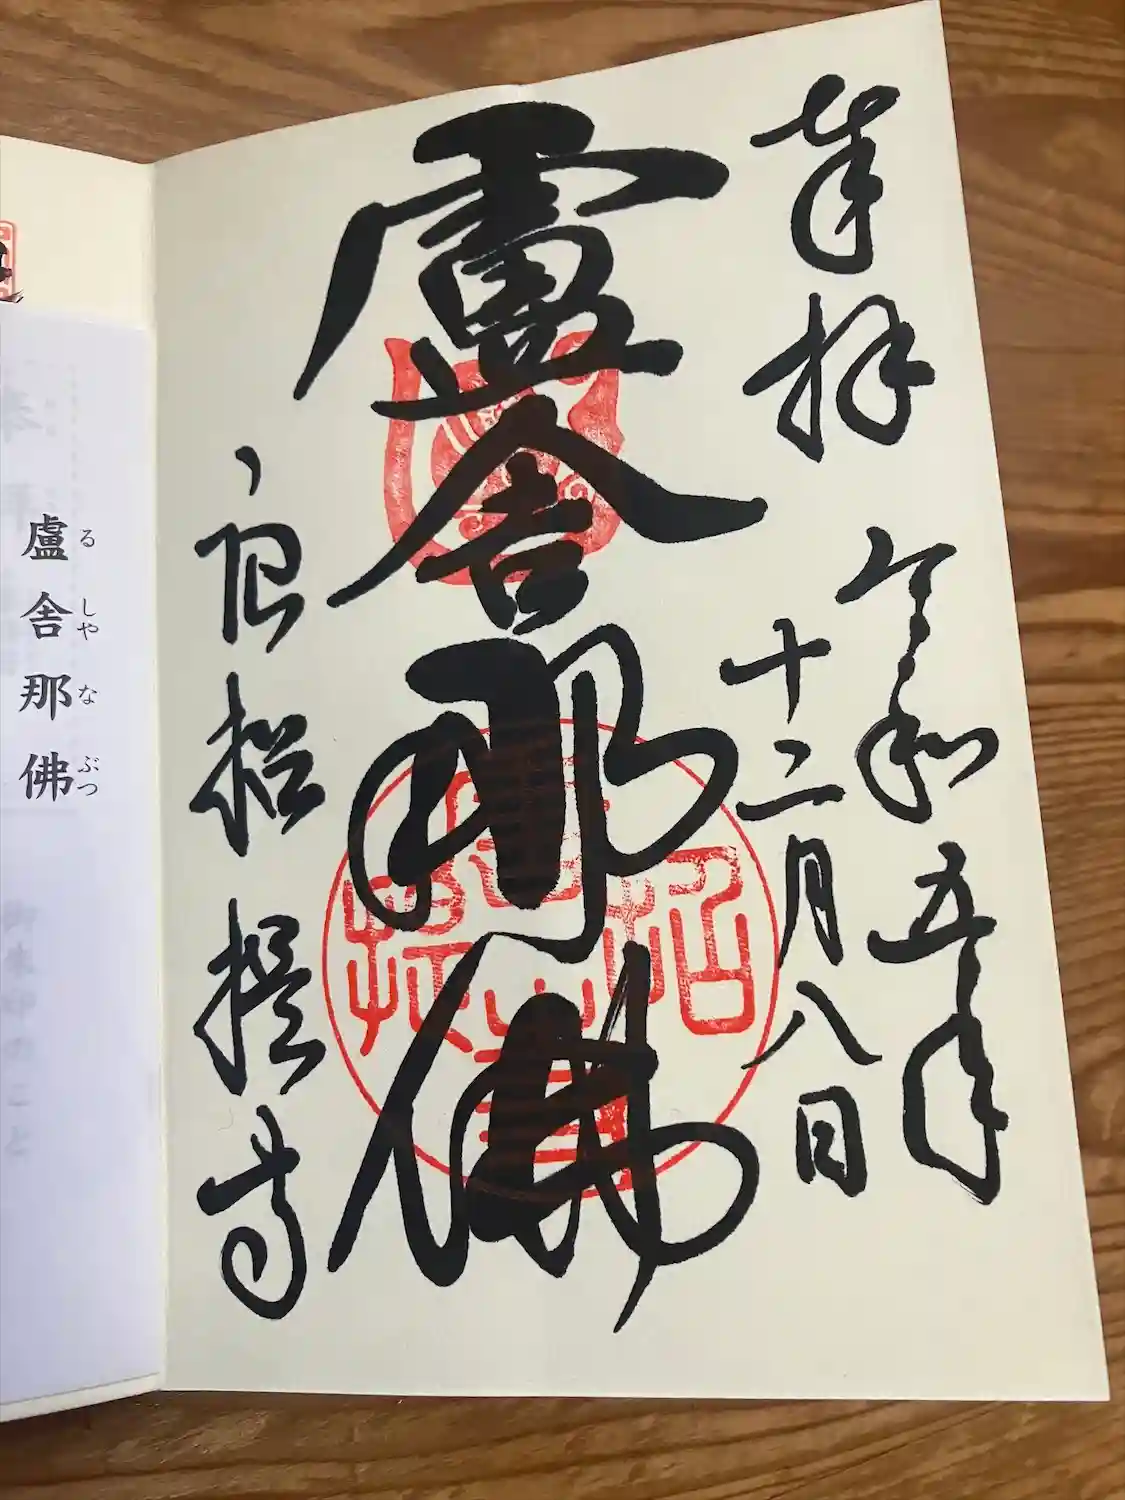 奉拝
令和五年
十二月八日
盧舎那佛
唐招提寺
盧舎那佛
るしゃなぶつ